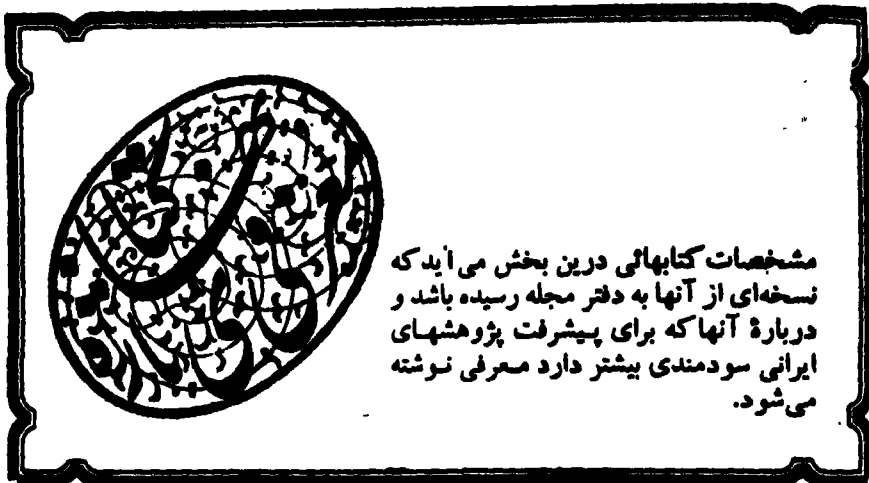 مشخصات کتابهائی درین بخش می آید که
نسخه‌ای از آنها به دفتر مجله رسیده باشد و
دربارهٔ آنها که برای پیشرفت پژوهشهای
ایرانی سودمندی بیشتر دارد معرفی نوشته
می‌شود.